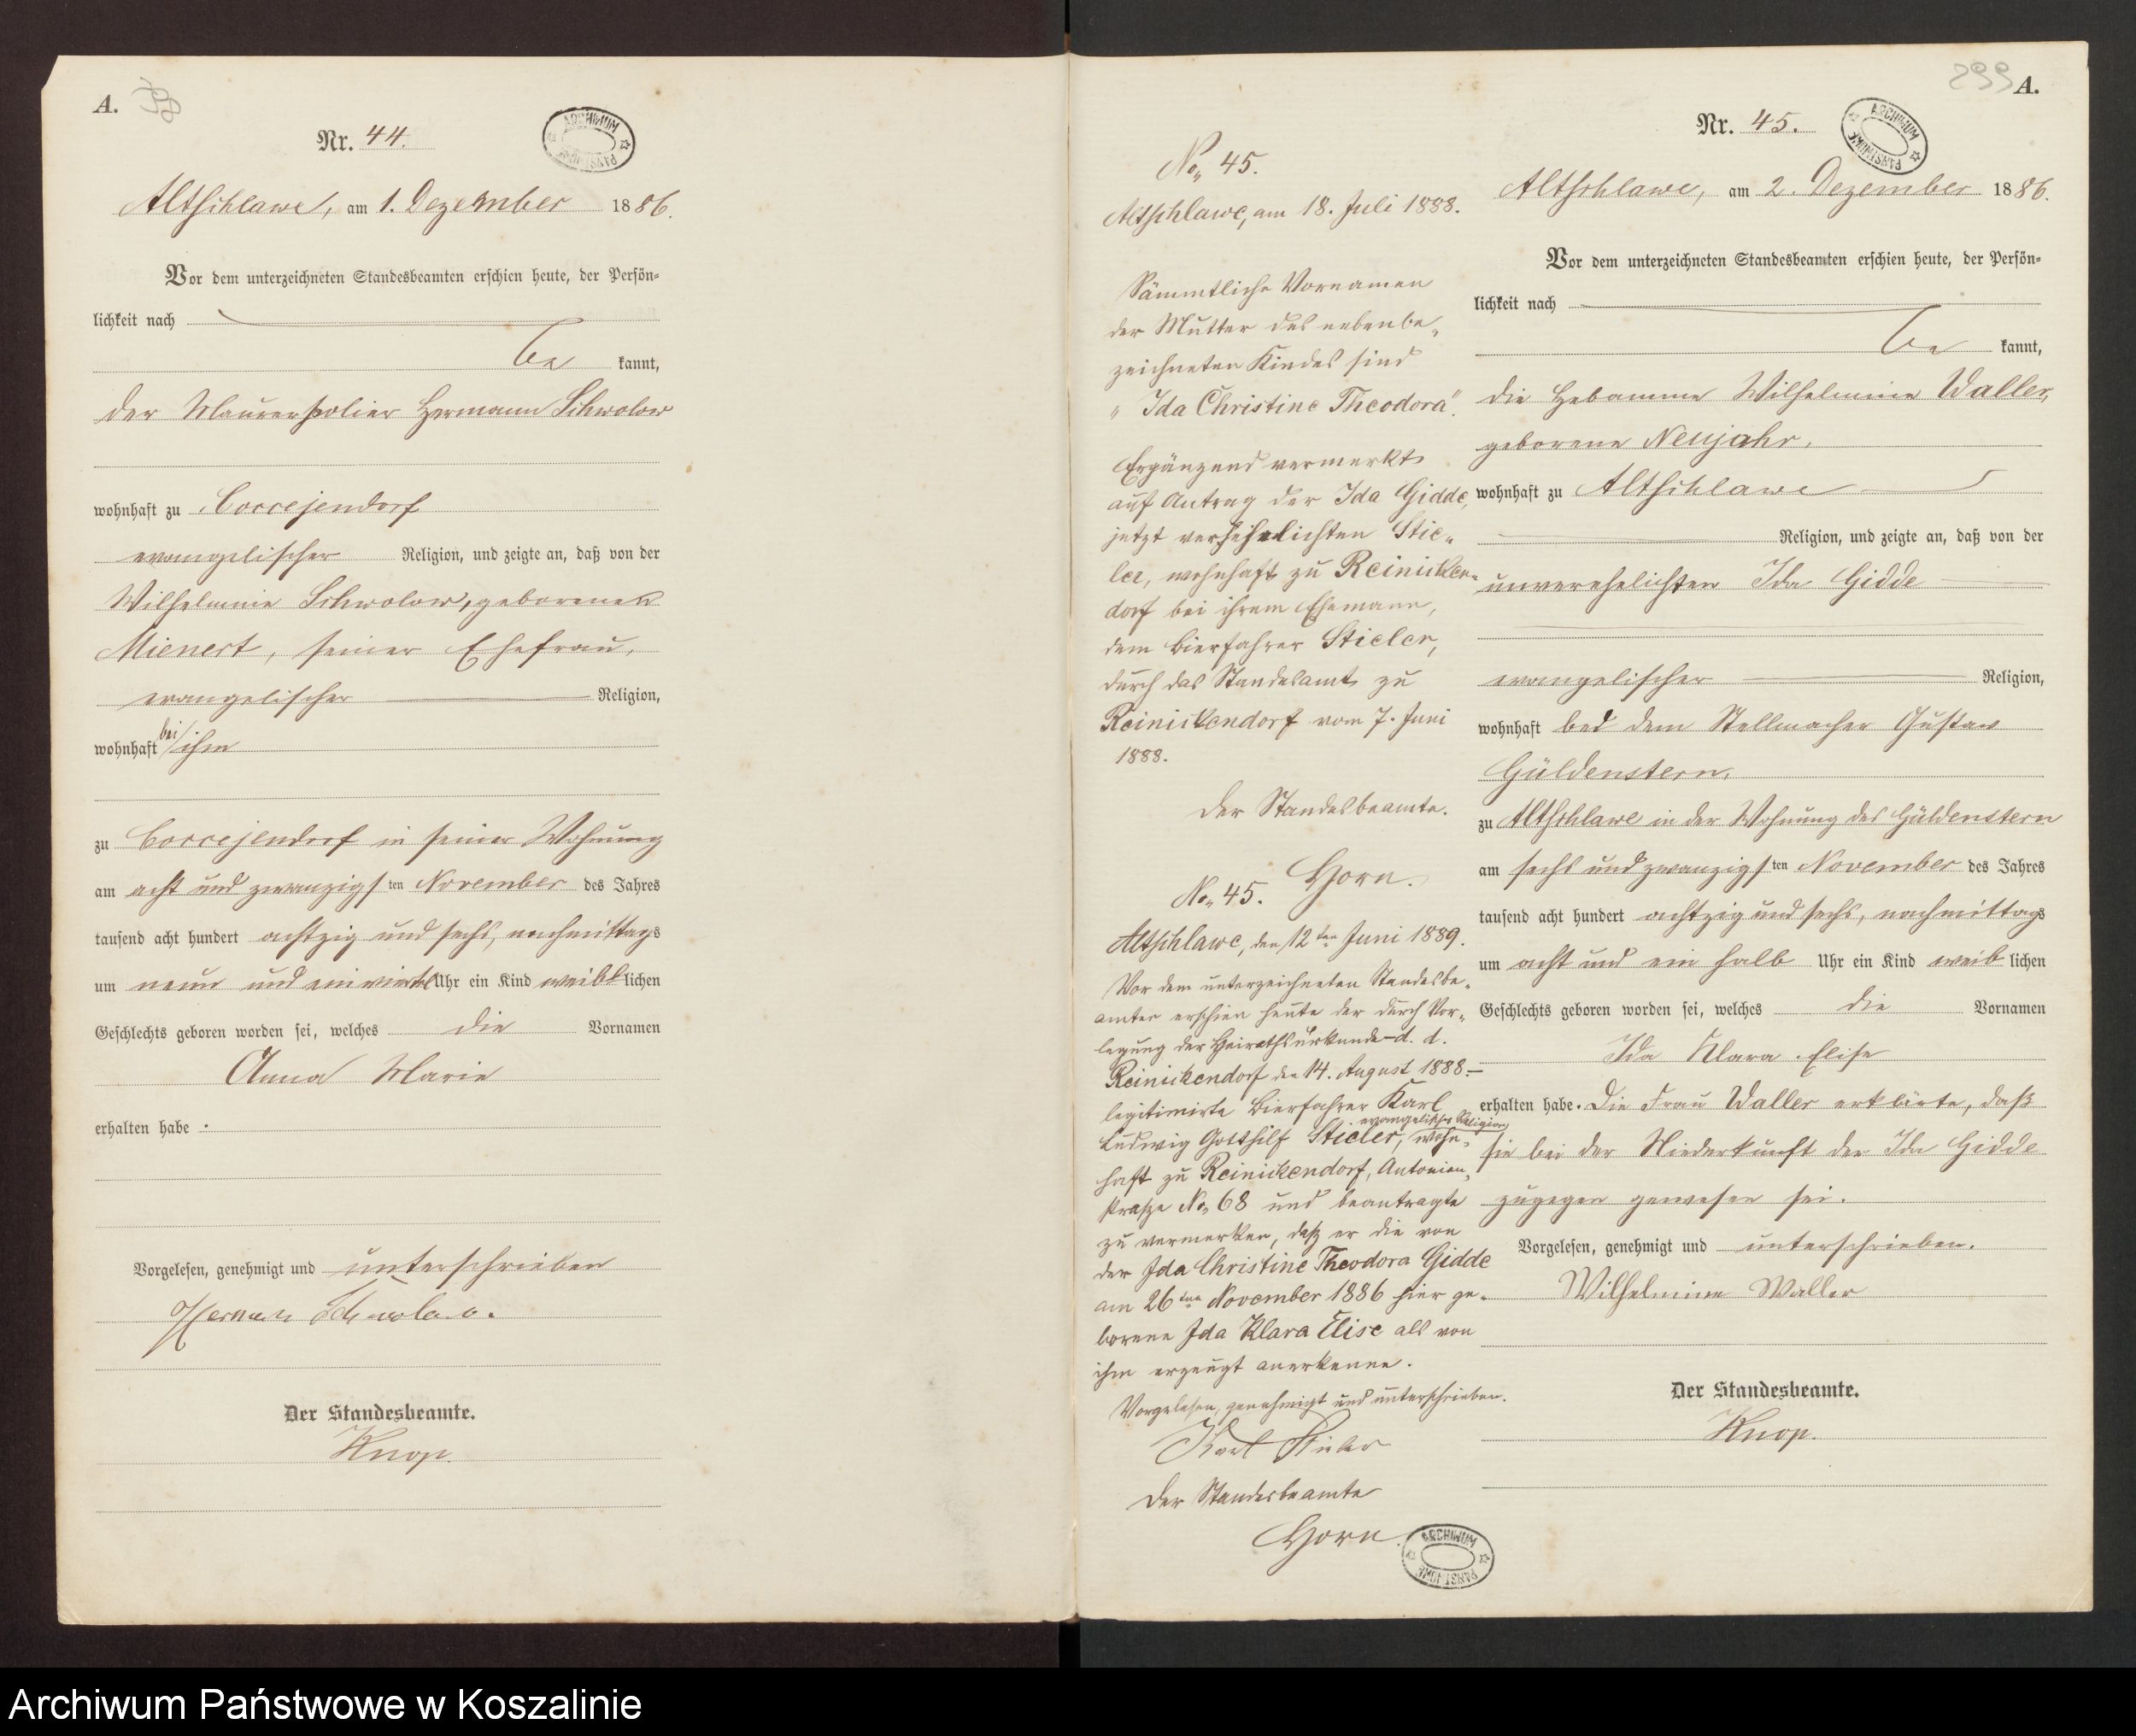 A.
Nr. 44.
ARCHIWUM PAŃSTWOWE
Altschlawe, am 1. Dezember 1886.
Vor dem unterzeichneten Standesbeamten erschien heute, der Persön=
lichkeit nach
be kannt,
der Maurerpolier Hermann Schwolow
wohnhaft zu Coccejendorf
evangelischer Religion, und zeigte an, daß von der
Wilhelmine Schwolow, geborenen
Mienert, seiner Ehefrau,
evangelischer Religion,
wohnhaft bei ihm
zu Coccejendorf in seiner Wohnung
am acht und zwanzigsten November des Jahres
tausend acht hundert achtzig und sechs, nachmittags
um neun und ein viertel Uhr ein Kind weiblichen
Geschlechts geboren worden sei, welches die Vornamen
Anna Marie
erhalten habe.
Vorgelesen, genehmigt und unterschrieben
Herman Schwolow.
Der Standesbeamte.
Knop.
No. 45.
Altschlawe, am 18. Juli 1888.
Sämmtliche Vornamen
der Mutter des nebenbe-
zeichneten Kindes sind
"Ida Christine Theodora".
Ergänzend vermerkt
auf Antrag der Ida Gidde,
jetzt verehelichten Stie-
ler, wohnhaft zu Reinicken-
dorf bei ihrem Ehemann,
dem Bierfahrer Stieler,
durch das Standesamt zu
Reinickendorf vom 7. Juni
1888.
Der Standesbeamte.
Horn.
No. 45.
Altschlawe, den 12ten Juni 1889.
Vor dem unterzeichneten Standesbe-
amten erschien heute der durch Vor-
legung der Heirathsurkunde d. d.
Reinickendorf den 14. August 1888 –
legitimirte Bierfahrer Karl
evangelischer Religion
Ludwig Gotthilf Stieler, wohn-
haft zu Reinickendorf, Antonien-
straße No. 68 und beantragte
zu vermerken, daß er die von
der Ida Christine Theodora Gidde
am 26ten November 1886 hier ge-
borene Ida Klara Elise als von
ihm erzeugt anerkenne.
Vorgelesen, genehmigt und unterschrieben.
Karl Stieler
Der Standesbeamte
Horn.
ARCHIWUM PAŃSTWOWE
299 A.
Nr. 45.
ARCHIWUM PAŃSTWOWE
Altschlawe, am 2. Dezember 1886.
Vor dem unterzeichneten Standesbeamten erschien heute, der Persön=
lichkeit nach
be kannt,
die Hebamme Wilhelmine Waller,
geborene Neujahr,
wohnhaft zu Altschlawe
Religion, und zeigte an, daß von der
unverehelichten Ida Gidde
evangelischer Religion,
wohnhaft bei dem Stellmacher Gustav
Güldenstern,
zu Altschlawe in der Wohnung des Güldenstern
am sechs und zwanzigsten November des Jahres
tausend acht hundert achtzig und sechs, nachmittags
um acht und ein halb Uhr ein Kind weiblichen
Geschlechts geboren worden sei, welches die Vornamen
Ida Klara Elise
erhalten habe. Die Frau Waller erklärte, daß
sie bei der Niederkunft der Ida Gidde
zugegen gewesen sei.
Vorgelesen, genehmigt und unterschrieben.
Wilhelmine Waller
Der Standesbeamte.
Knop.
Archiwum Państwowe w Koszalinie